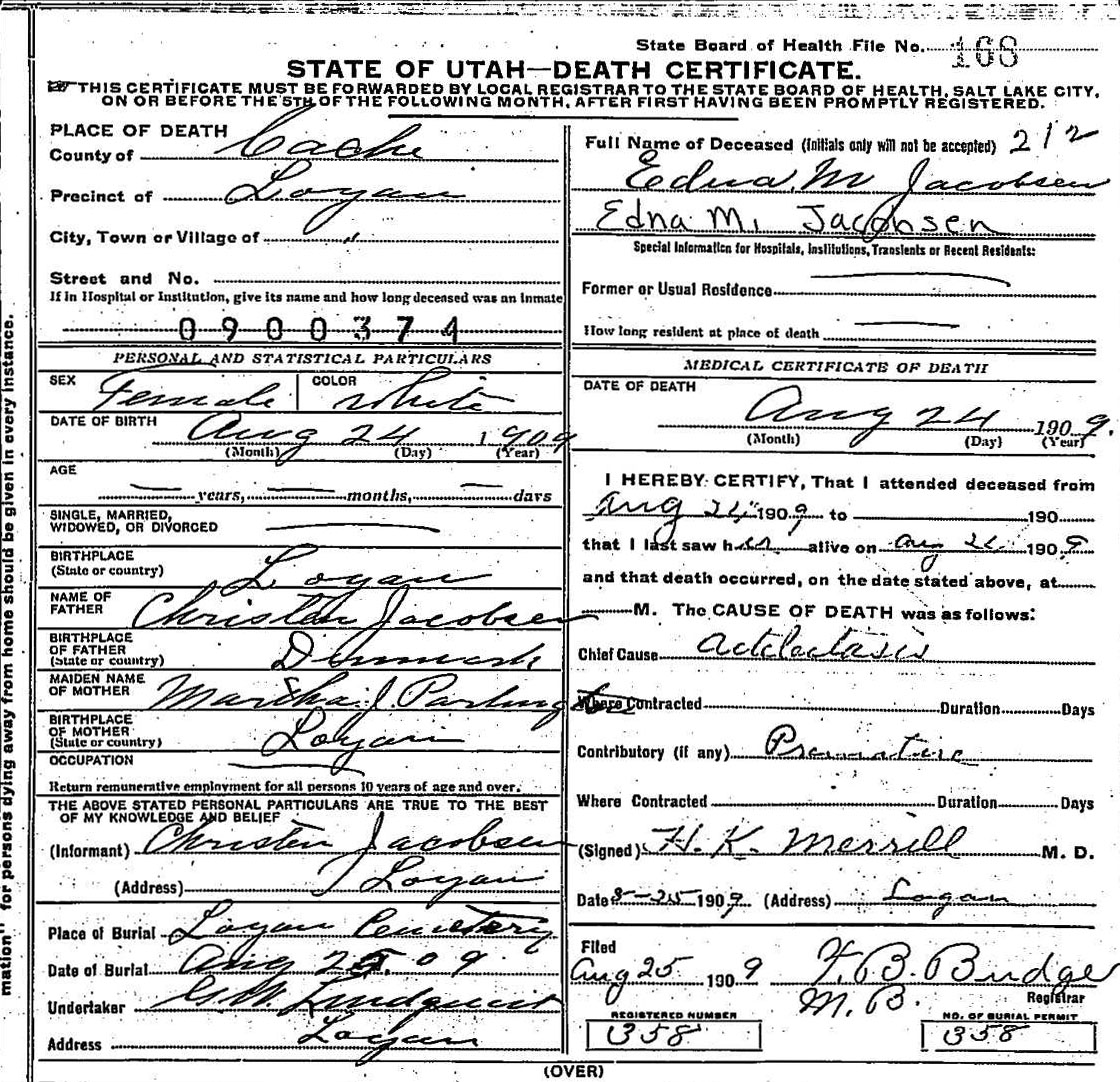 State Board of Health File No. 168
STATE OF UTAH—DEATH CERTIFICATE.
THIS CERTIFICATE MUST BE FORWARDED BY LOCAL REGISTRAR TO THE STATE BOARD OF HEALTH, SALT LAKE CITY,
ON OR BEFORE THE 5TH OF THE FOLLOWING MONTH, AFTER FIRST HAVING BEEN PROMPTLY REGISTERED.
PLACE OF DEATH
County of Cache
Precinct of Logan
City, Town or Village of "
Street and No.
If in Hospital or Institution, give its name and how long deceased was an inmate
0900374
PERSONAL AND STATISTICAL PARTICULARS
SEX Female COLOR White
DATE OF BIRTH Aug 24 1909
(Month) (Day) (Year)
AGE
years, months, days
SINGLE, MARRIED,
WIDOWED, OR DIVORCED
BIRTHPLACE
(State or country) Logan
NAME OF
FATHER Christen Jacobsen
BIRTHPLACE
OF FATHER
(State or country) Denmark
MAIDEN NAME
OF MOTHER Martha J. Partington
BIRTHPLACE
OF MOTHER
(State or country) Logan
OCCUPATION
Return remunerative employment for all persons 10 years of age and over.
THE ABOVE STATED PERSONAL PARTICULARS ARE TRUE TO THE BEST
OF MY KNOWLEDGE AND BELIEF
(Informant) Christen Jacobsen
(Address) Logan
Place of Burial Logan Cemetery
Date of Burial Aug 25. 09
Undertaker Lindquist
Address Logan
Full Name of Deceased (Initials only will not be accepted) 212
Edna M Jacobsen
Edna M. Jacobsen
Special Information for Hospitals, Institutions, Transients or Recent Residents:
Former or Usual Residence
How long resident at place of death
MEDICAL CERTIFICATE OF DEATH
DATE OF DEATH
Aug 24 1909.
(Month) (Day) (Year)
I HEREBY CERTIFY, That I attended deceased from
Aug 24 1909 to 190
that I last saw her alive on Aug 24 1909
and that death occurred, on the date stated above, at
M. The CAUSE OF DEATH was as follows:
Chief Cause Actelectasis
Where Contracted Duration Days
Contributory (if any) Premature
Where Contracted Duration Days
(Signed) H. K. Merrill M. D.
Date 8-25 1909 (Address) Logan
Filed
Aug 25 1909 F. B. Budge
M. B. Registrar
REGISTERED NUMBER NO. OF BURIAL PERMIT
358 358
(OVER)
mation" for persons dying away from home should be given in every instance.